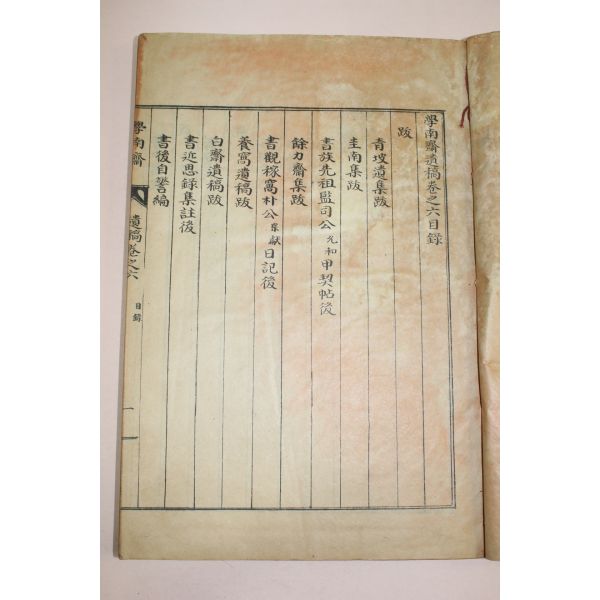 學南齋遺稿卷之六目録
跋
青坡遺集跋
圭南集跋
書族先祖監司公允和甲契帖後
餘力齋集跋
書觀稼窩朴公宗獻日記後
養窩遺稿跋
白齋遺稿跋
書近思録集註後
書後自警編
學南齋
遺稿卷之六
目録
一